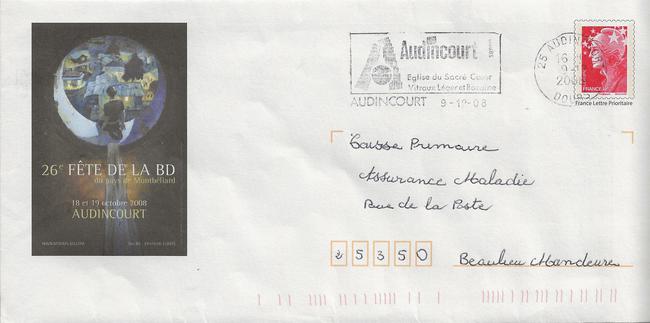 Audincourt
Eglise du Sacré Cœur
Vitraux Léger et Bazaine
AUDINCOURT 9-10-08
25 AUDIN
16
9-
2008
DOUBS
FRANCE
France Lettre Prioritaire
26e FÊTE DE LA BD
du pays de Montbéliard
18 et 19 octobre 2008
AUDINCOURT
Caisse Primaire
Assurance Maladie
Rue de la Poste
25350
Beaulieu Mandeure